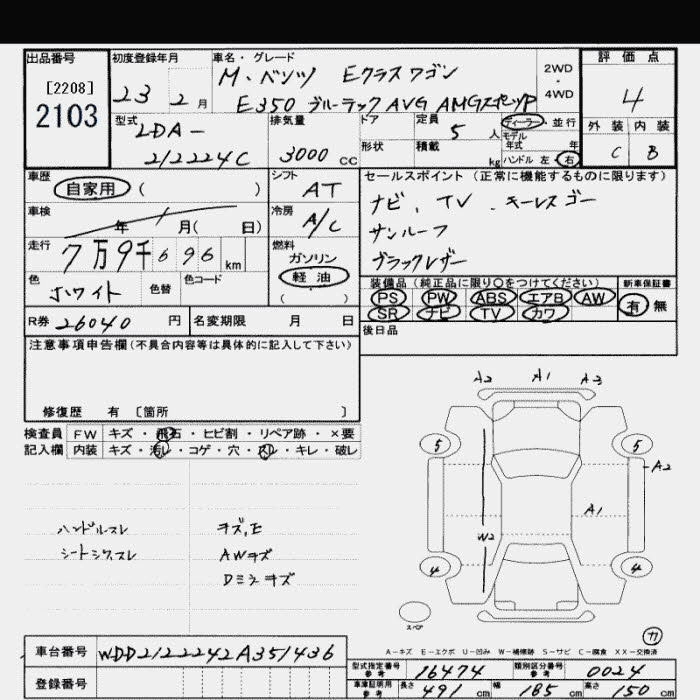 出品番号 初度登録年月 車名・グレード 評価点
[2208] 23 2 月 M・ベンツ Eクラスワゴン 2WD
2103 E350 ブルーテック AVG AMGスポーツP ・ 4WD 4
型式 排気量 ドア 定員 5 人 ディーラー・並行 外装 内装
LDA- モデル
形状 積載 kg 年式 年 C B
212224C 3000 CC ハンドル 左・右
車歴 シフト セールスポイント (正常に機能するものに限ります)
自家用 ( ) AT ナビ、TV、キーレスゴー
車検 冷房
年 / 月( 日) A/C サンルーフ
走行 燃料
7万9千696 km ガソリン ブラックレザー
色 色替 色コード 軽油 装備品 (純正品に限り〇をつけてください) 新車保証書
ホワイト ( ) PS PW ABS エアB AW 有 無
SR ナビ TV カワ
R券 26040 円 名変期限 月 日 後日品
注意事項申告欄(不具合内容等は具体的に記入して下さい)
修復歴 有 〔箇所 〕
検査員 FW キズ・飛石・ヒビ割・リペア跡・×要
記入欄 内装 キズ・汚レ・コゲ・穴・スレ・キレ・破レ
A2 A1 A3
5 5
A2
A1
W2
4 4
ハンドルスレ キズ,E
シートシワスレ AWキズ
Dミラーキズ
スペア
A-キズ E-エクボ U-凹み W-補修跡 S-サビ C-腐食 XX-交換済
車台番号 WDD2122242A351436
型式指定番号 参考 16474 類別区分番号 参考 0024
登録番号 車庫証明用 参考 長さ 491 cm 幅 185 cm 高さ 150 cm